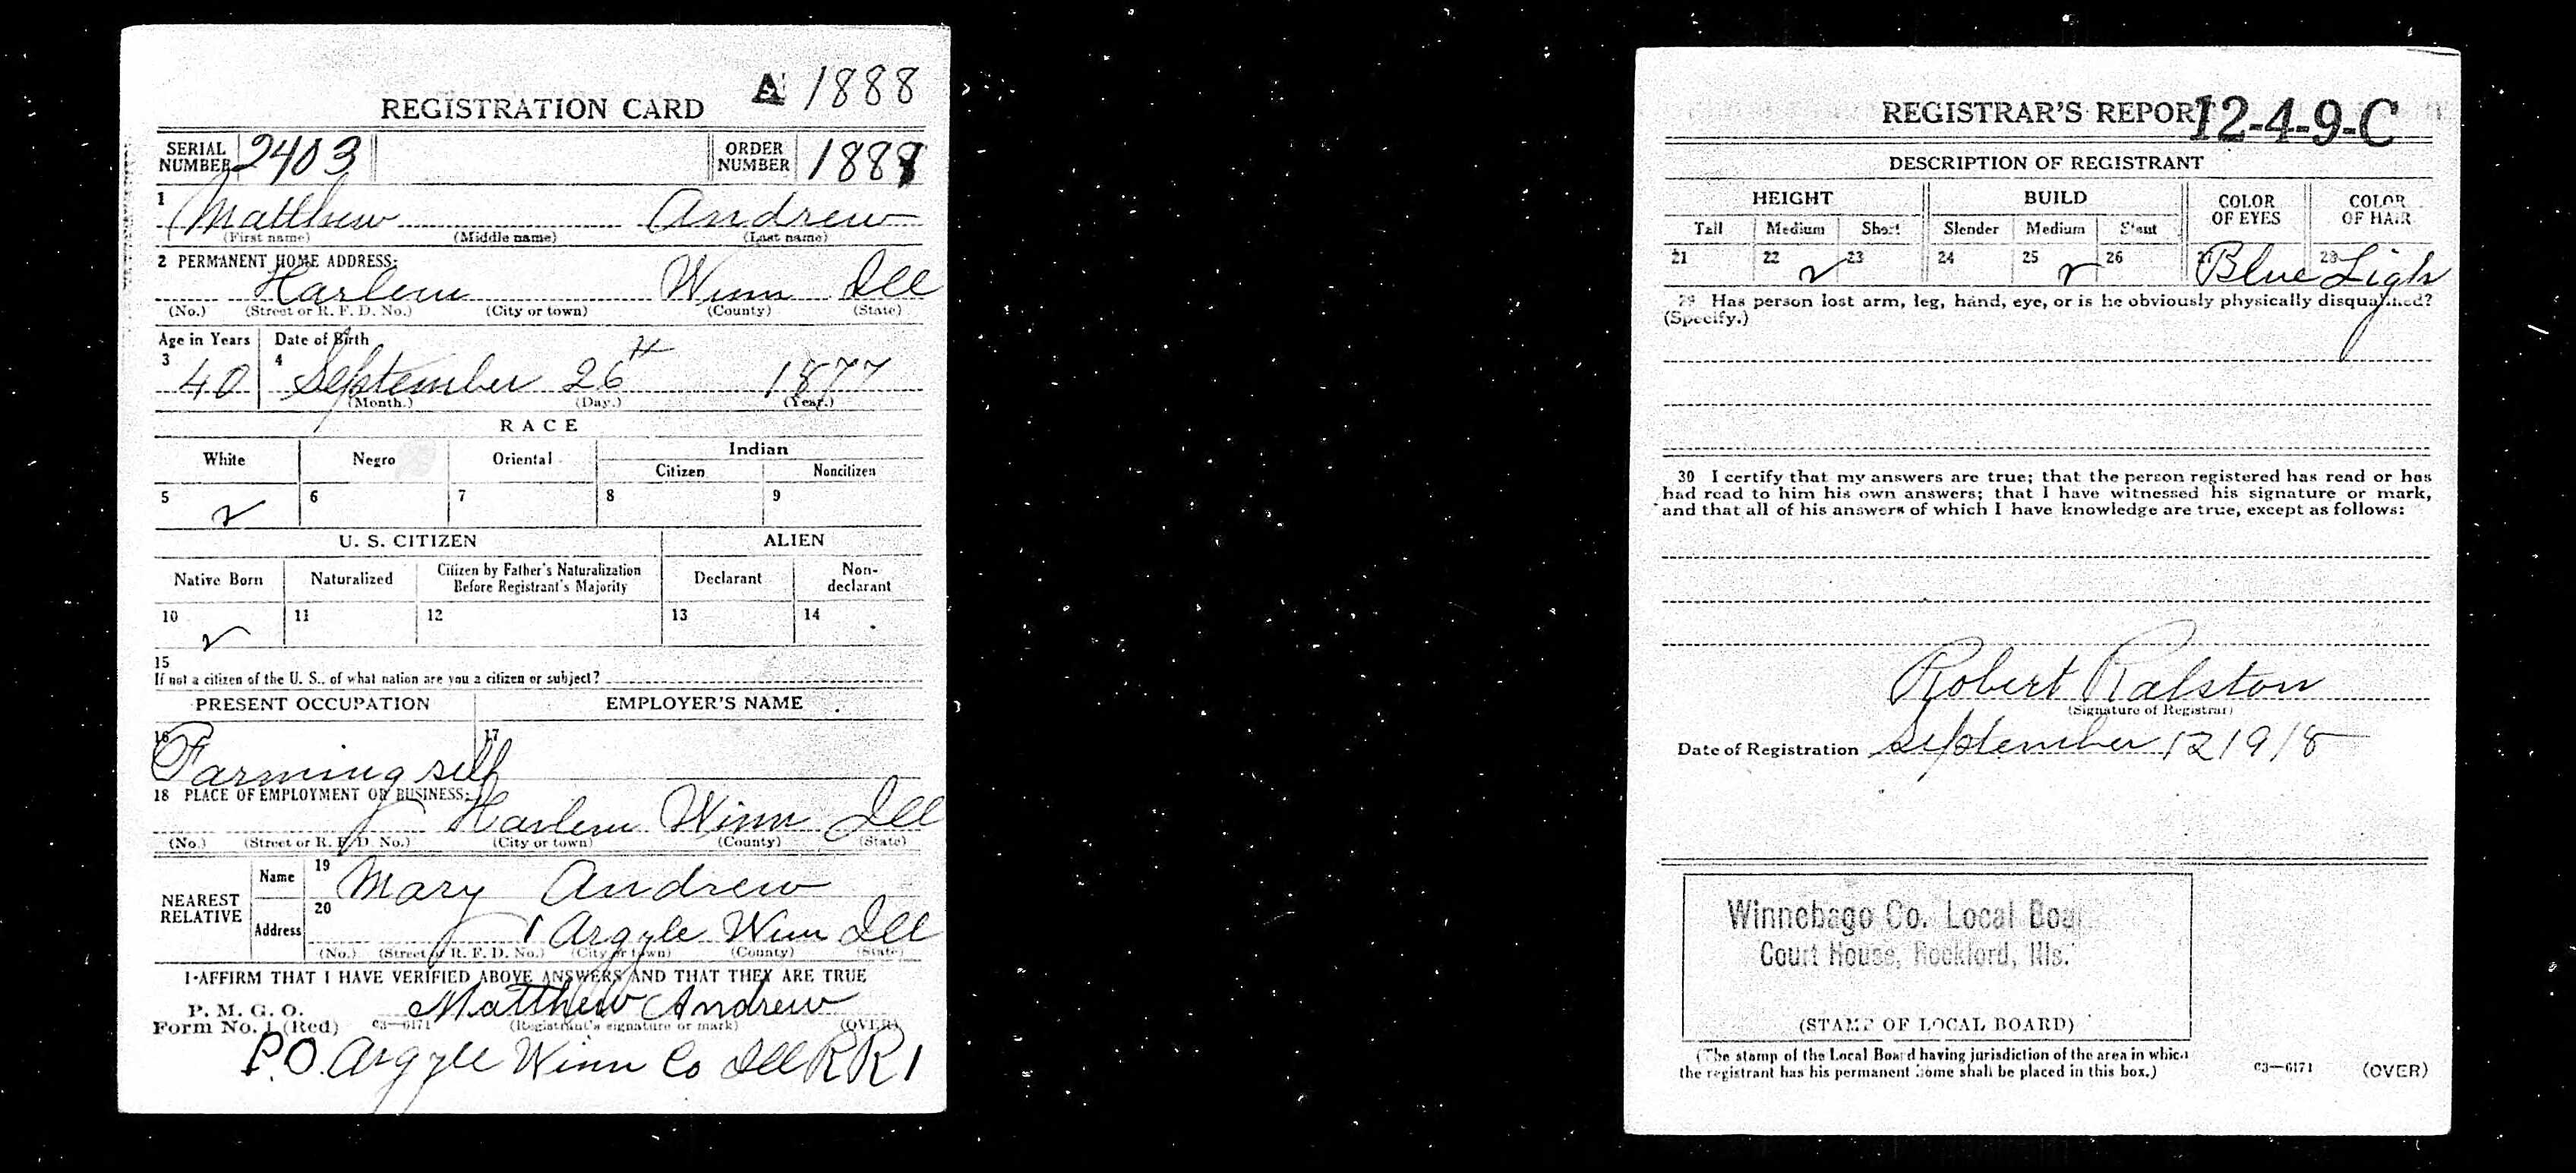 A 1888
REGISTRATION CARD
SERIAL NUMBER 2403 ORDER NUMBER
1 Matthew Andrew
(First name) (Middle name) (Last name)
2 PERMANENT HOME ADDRESS:
Harlem Winn Ill
(No.) (Street or R. F. D. No.) (City or town) (County) (State)
Age in Years Date of Birth
3 40 4 September 26th 1877
(Month.) (Day.) (Year.)
RACE
White Negro Oriental Indian
Citizen Noncitizen
5 ✓ 6 7 8 9
U. S. CITIZEN ALIEN
Native Born Naturalized Citizen by Father's Naturalization Before Registrant's Majority Declarant Non-declarant
10 ✓ 11 12 13 14
15
If not a citizen of the U. S., of what nation are you a citizen or subject?
PRESENT OCCUPATION EMPLOYER'S NAME
16 Farming self 17
18 PLACE OF EMPLOYMENT OR BUSINESS:
Harlem Winn Ill
(No.) (Street or R. F. D. No.) (City or town) (County) (State)
NEAREST RELATIVE Name 19 Mary Andrew
Address 20 1 Argyle Winn Ill
(No.) (Street or R. F. D. No.) (City or town) (County) (State)
I AFFIRM THAT I HAVE VERIFIED ABOVE ANSWERS AND THAT THEY ARE TRUE
P. M. G. O.
Form No. 1 (Red) C3—6171 Matthew Andrew
(Registrant's signature or mark) (OVER)
P.O. Argyle Winn Co Ill RR1
REGISTRAR'S REPORT 12-4-9-C
DESCRIPTION OF REGISTRANT
HEIGHT BUILD COLOR OF EYES COLOR OF HAIR
Tall Medium Short Slender Medium Stout
21 22 ✓ 23 24 25 ✓ 26 27 Blue 28 Light
29 Has person lost arm, leg, hand, eye, or is he obviously physically disqualified?
(Specify.)
30 I certify that my answers are true; that the person registered has read or has
had read to him his own answers; that I have witnessed his signature or mark,
and that all of his answers of which I have knowledge are true, except as follows:
Robert Ralston
(Signature of Registrar)
Date of Registration September 12 1918
Winnebago Co. Local Boa
Court House, Rockford, Ills.
(STAMP OF LOCAL BOARD)
(The stamp of the Local Board having jurisdiction of the area in which
the registrant has his permanent home shall be placed in this box.)
C3—6171 (OVER)